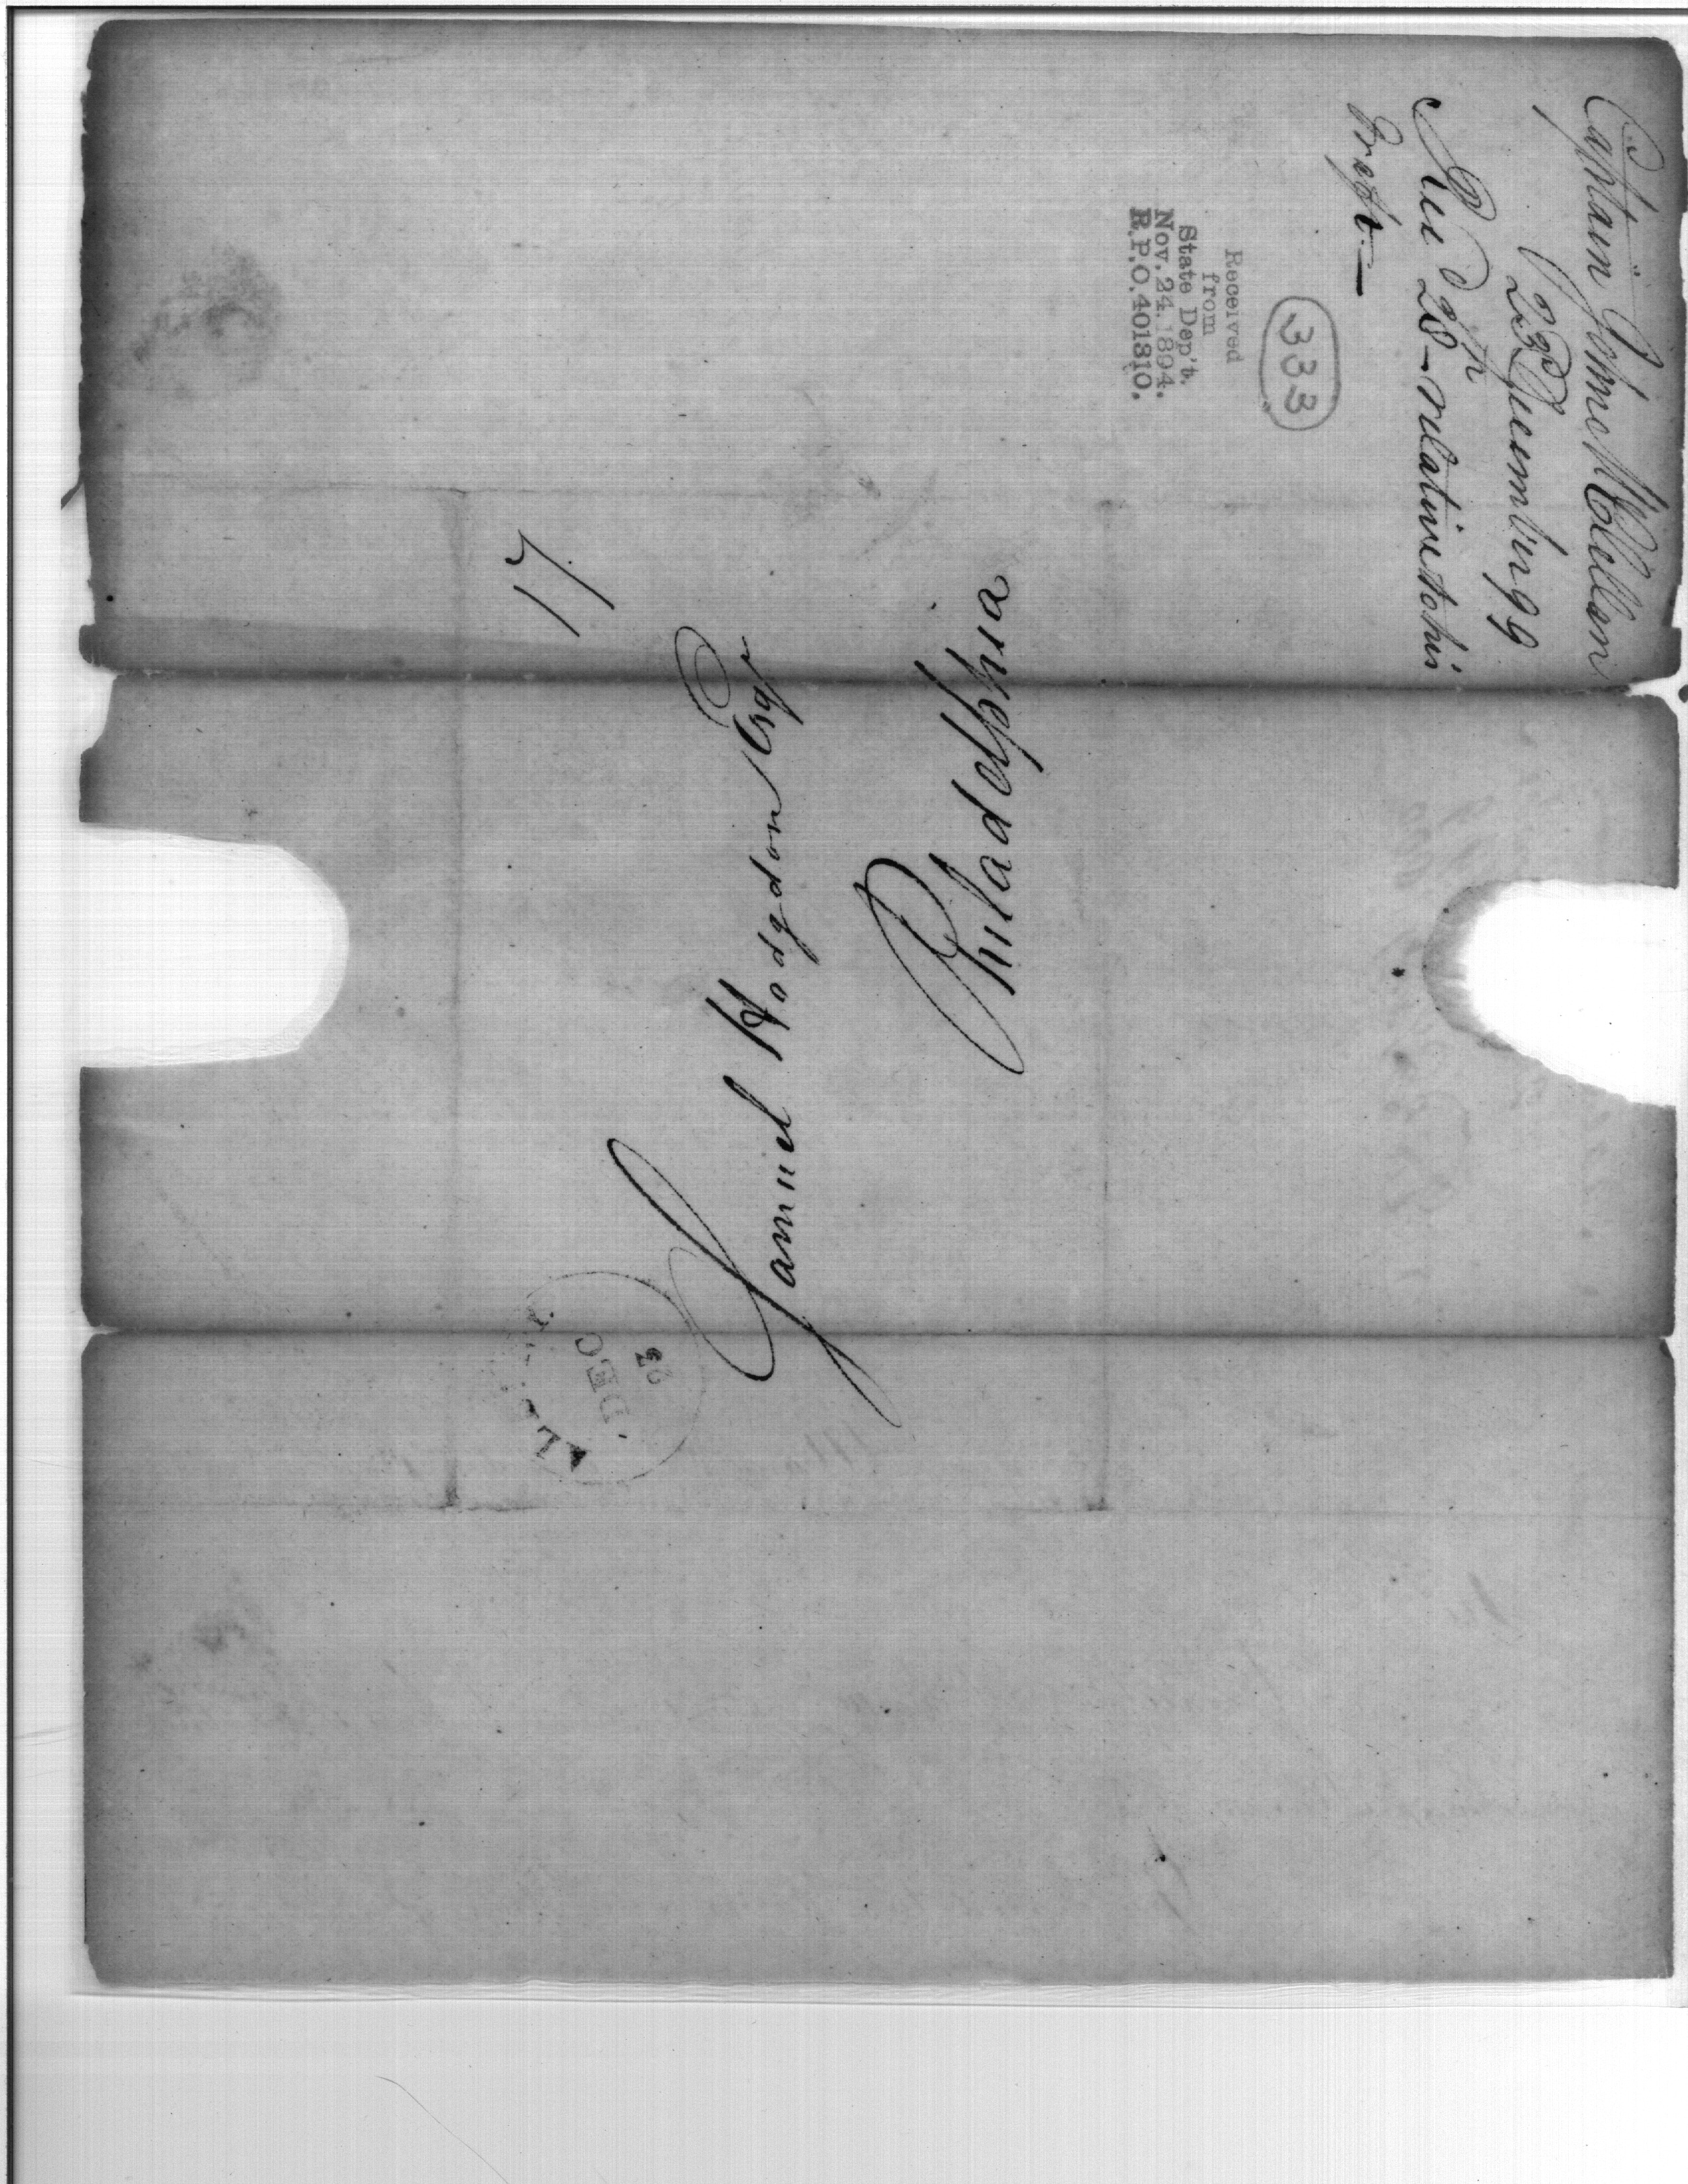 Captain John McClellan
23d December 99
Recd 28th relative to his
Draft—
333
Received
from
State Dep't.
Nov. 24. 1894.
R.P.O. 401310.
17
Samuel Hodgdon Esqr
Philadelphia
DEC
23